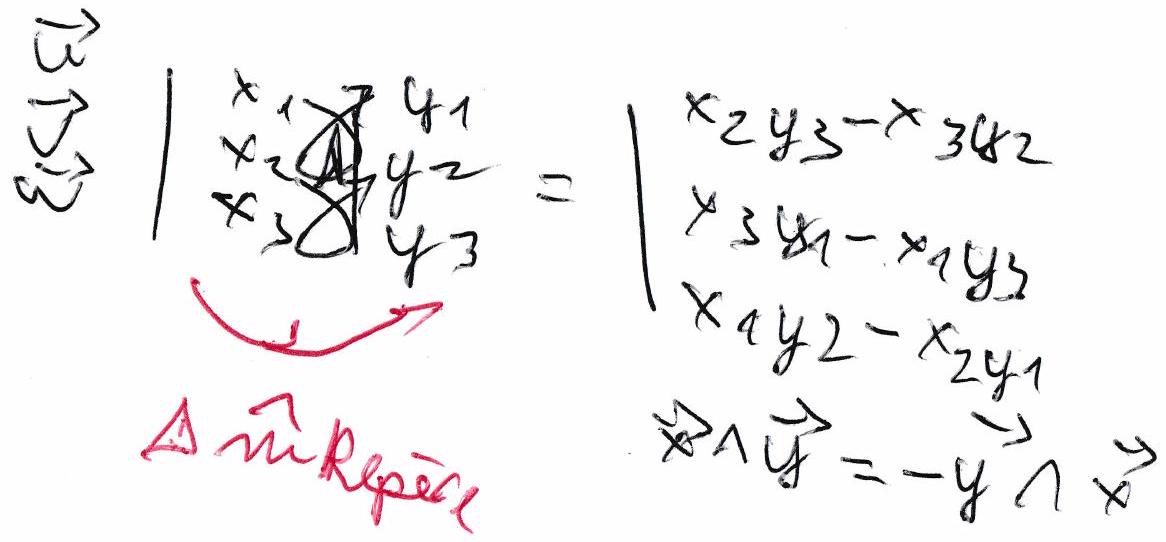 u⃗
v⃗
w⃗
| x1 ∧ y1 = | x2y3 - x3y2
x2 y2 x3y1 - x1y3
x3 y3 x1y2 - x2y1
⚠ m̂ Repère
x⃗ ∧ y⃗ = -y⃗ ∧ x⃗